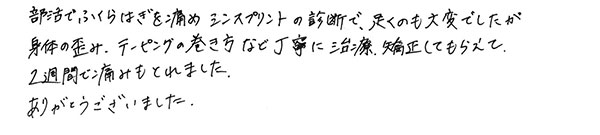 部活でふくらはぎを痛め シンスプリントの診断で、歩くのも大変でしたが
身体の歪み、テーピングの巻き方など丁寧に治療、矯正してもらえて、
2週間で痛みもとれました。
ありがとうございました。